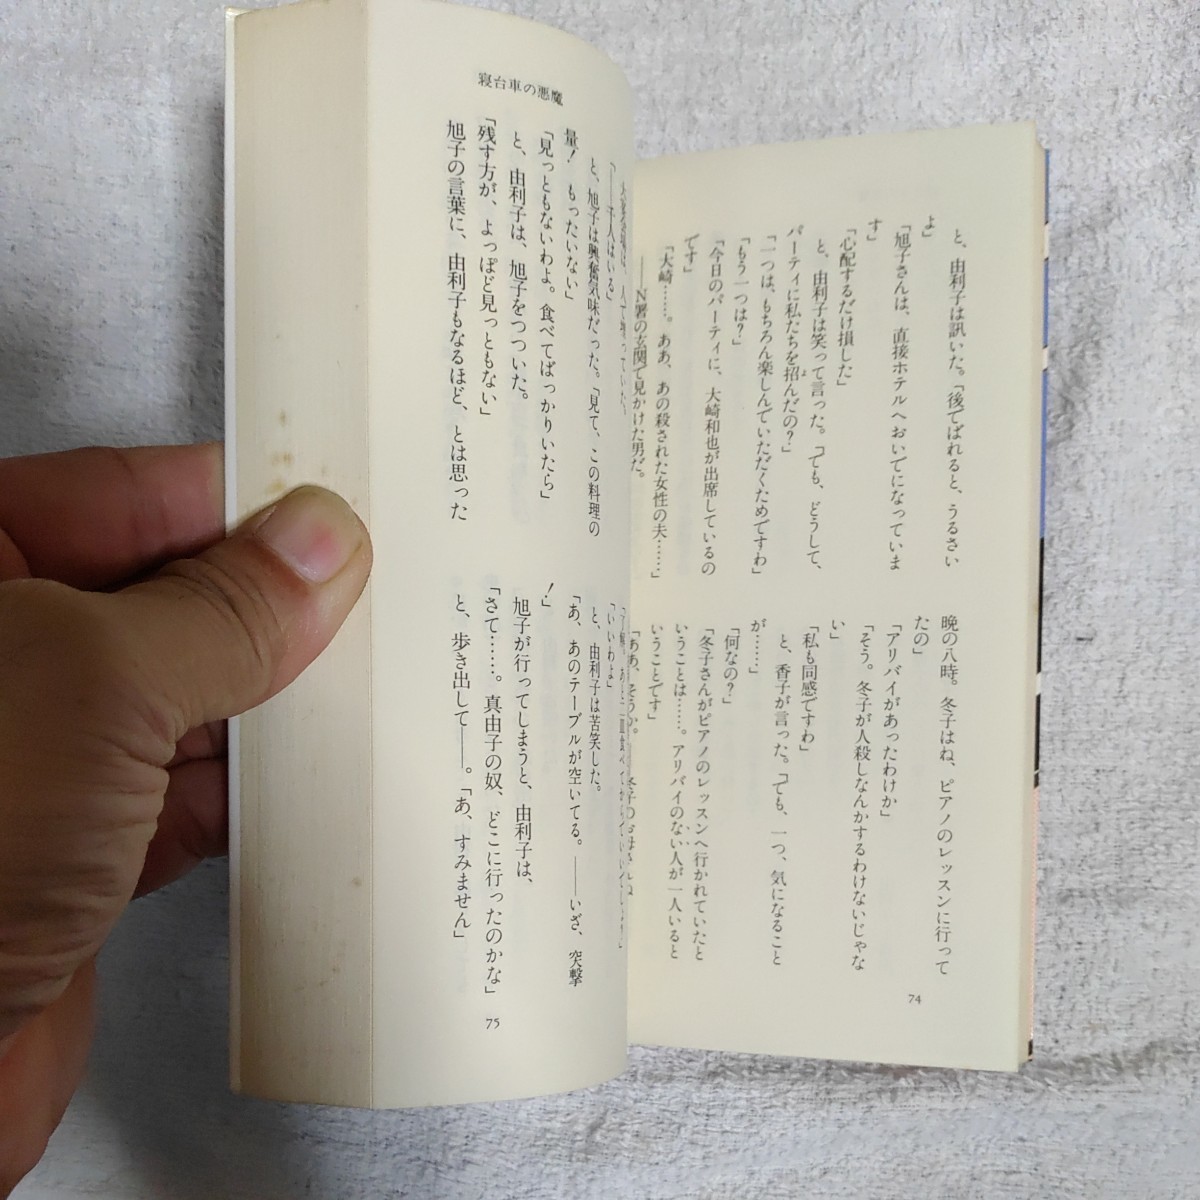 と、由利子は訊いた。「後でばれると、うるさい
よ」
「旭子さんは、直接ホテルへおいでになっていま
す」
「心配するだけ損した」
と、由利子は笑って言った。「でも、どうして、
パーティに私たちを招んだの？」
「一つは、もちろん楽しんでいただくためですわ」
「もう一つは？」
「今日のパーティに、大崎和也が出席しているの
です」
「大崎……。ああ、あの殺された女性の夫……」
——Ｎ署の玄関で見かけた男だ。
晩の八時。冬子はね、ピアノのレッスンに行って
たの」
「アリバイがあったわけか」
「そう。冬子が人殺しなんかするわけないじゃな
い」
「私も同感ですわ」
と、香子が言った。「でも、一つ、気になること
が……」
「何なの？」
「冬子さんがピアノのレッスンへ行かれていたと
いうことは……。アリバイのない人が一人いると
いうことです」
「ああ、そうか。——冬子のお母さんね
74
寝台車の悪魔
と、旭子は興奮気味だった。「見て、この料理の
量！　もったいない」
「見っともないわよ。食べてばっかりいたら」
と、由利子は、旭子をつついた。
「残す方が、よっぽど見っともない」
旭子の言葉に、由利子もなるほど、とは思った
「いいわよ」
と、由利子は苦笑した。
「あ、あのテーブルが空いてる。——いざ、突撃
！」
旭子が行ってしまうと、由利子は、
「さて……。真由子の奴、どこに行ったのかな」
と、歩き出して——。「あ、すみません」
75